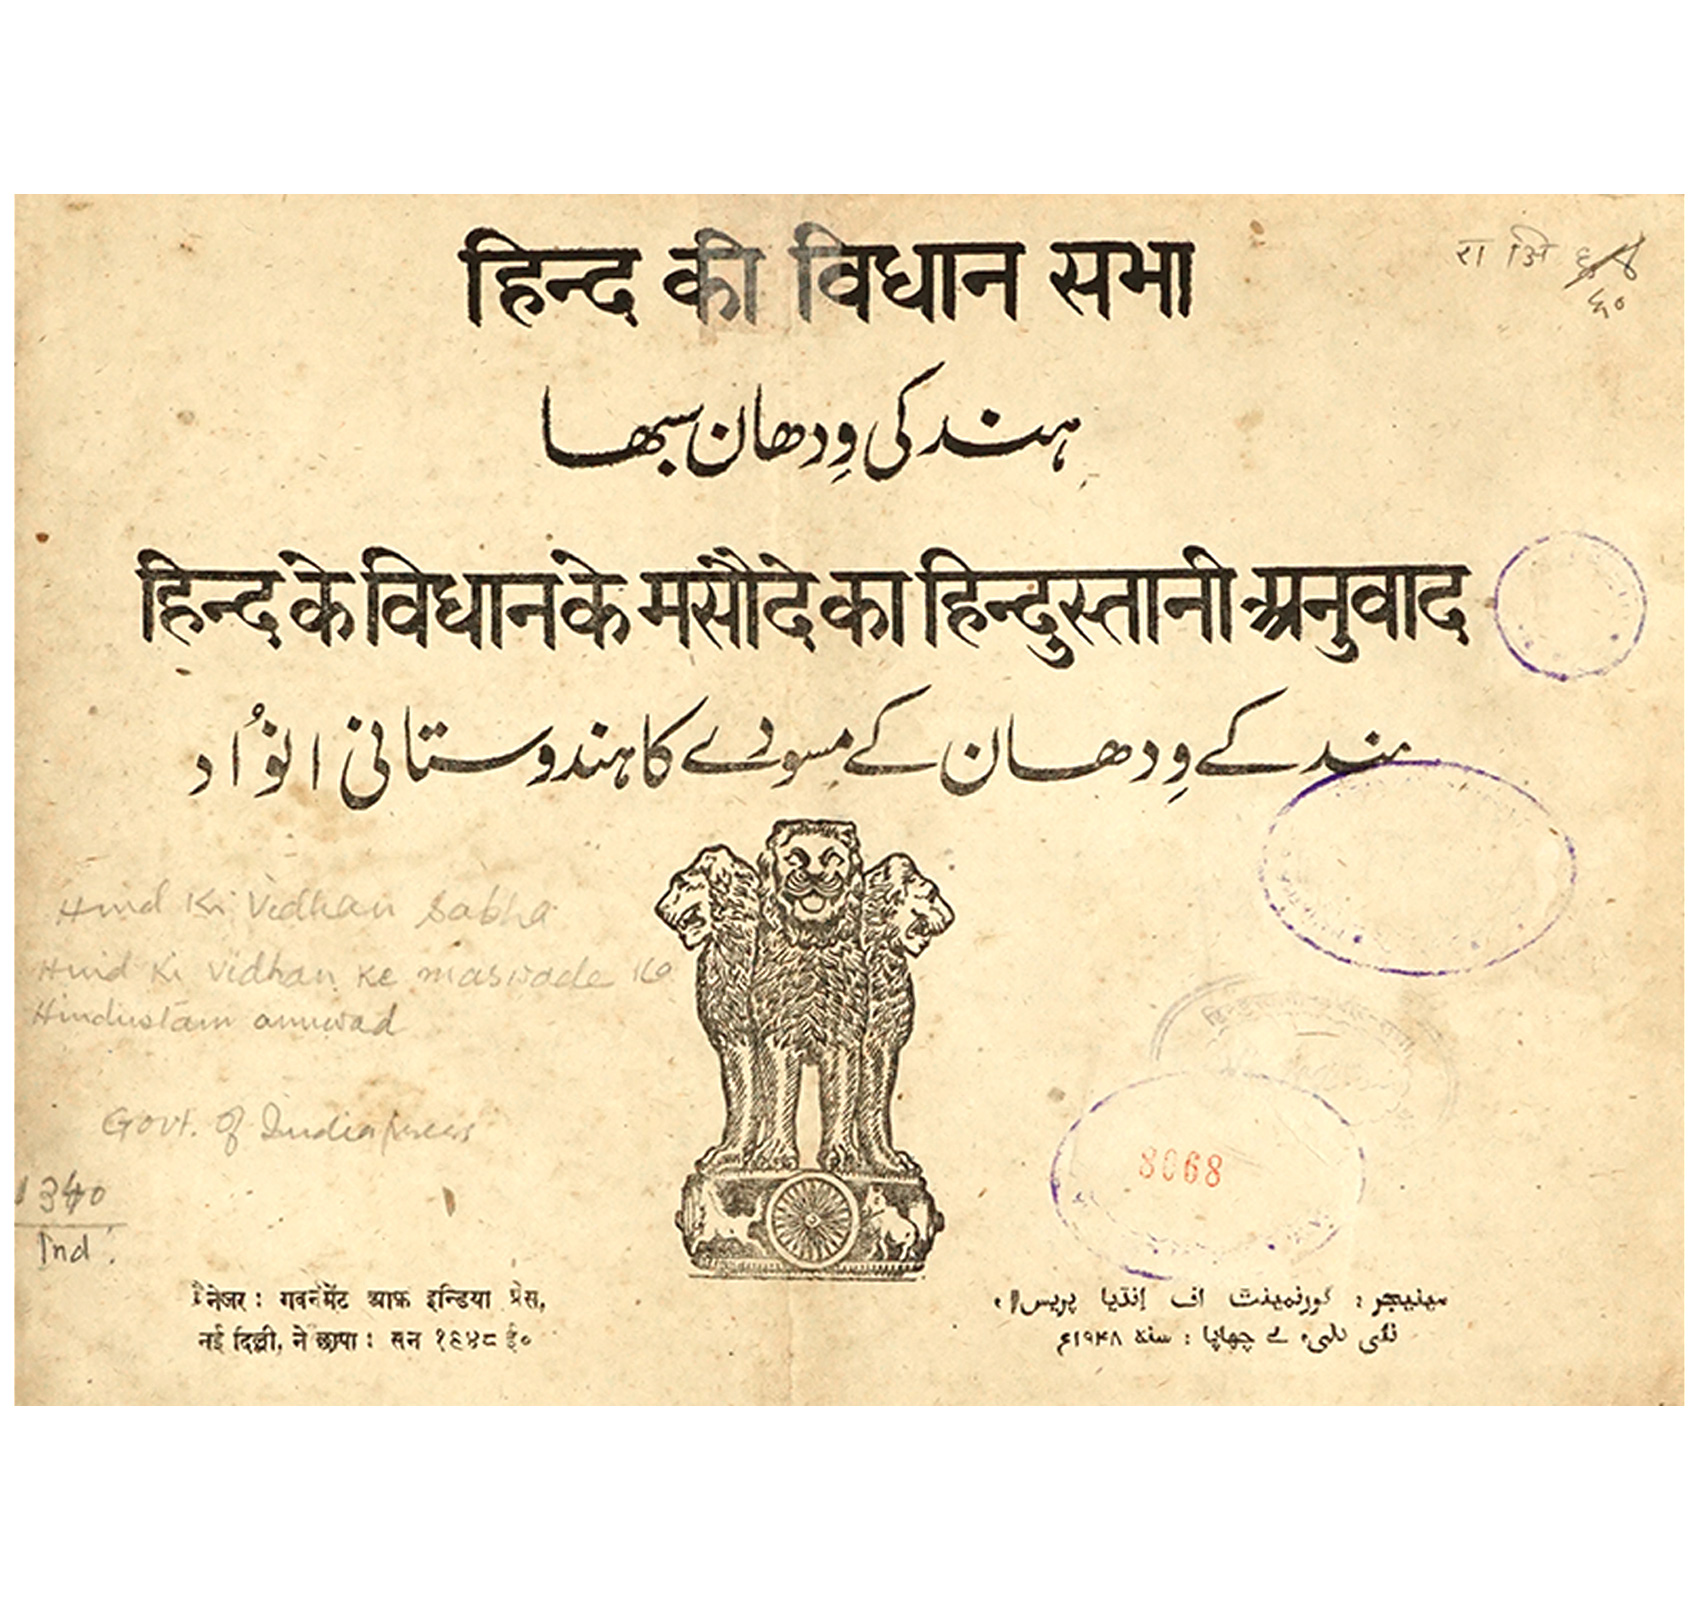 हिन्द की विधान सभा
रा अि ६४
६०
ہند کی وِدھان سبھا
हिन्द के विधान के मसौदे का हिन्दुस्तानी अनुवाद
ہند کے وِدھان کے مسودے کا ہندوستانی انوُاد
Hind Ki Vidhan Sabha
Hind Ki Vidhan Ke maswade Ka
Hindustani anuwad
Govt. of India press
1340
Ind.
8068
मैनेजर : गवर्नमेंट आफ़ इन्डिया प्रेस,
नई दिल्ली, ने छापा : सन १९४८ ई०
مینیجر : گورنمینٹ آف انڈیا پریس،
نئی دلی، نے چھاپا : سنہ ۱۹۴۸ع